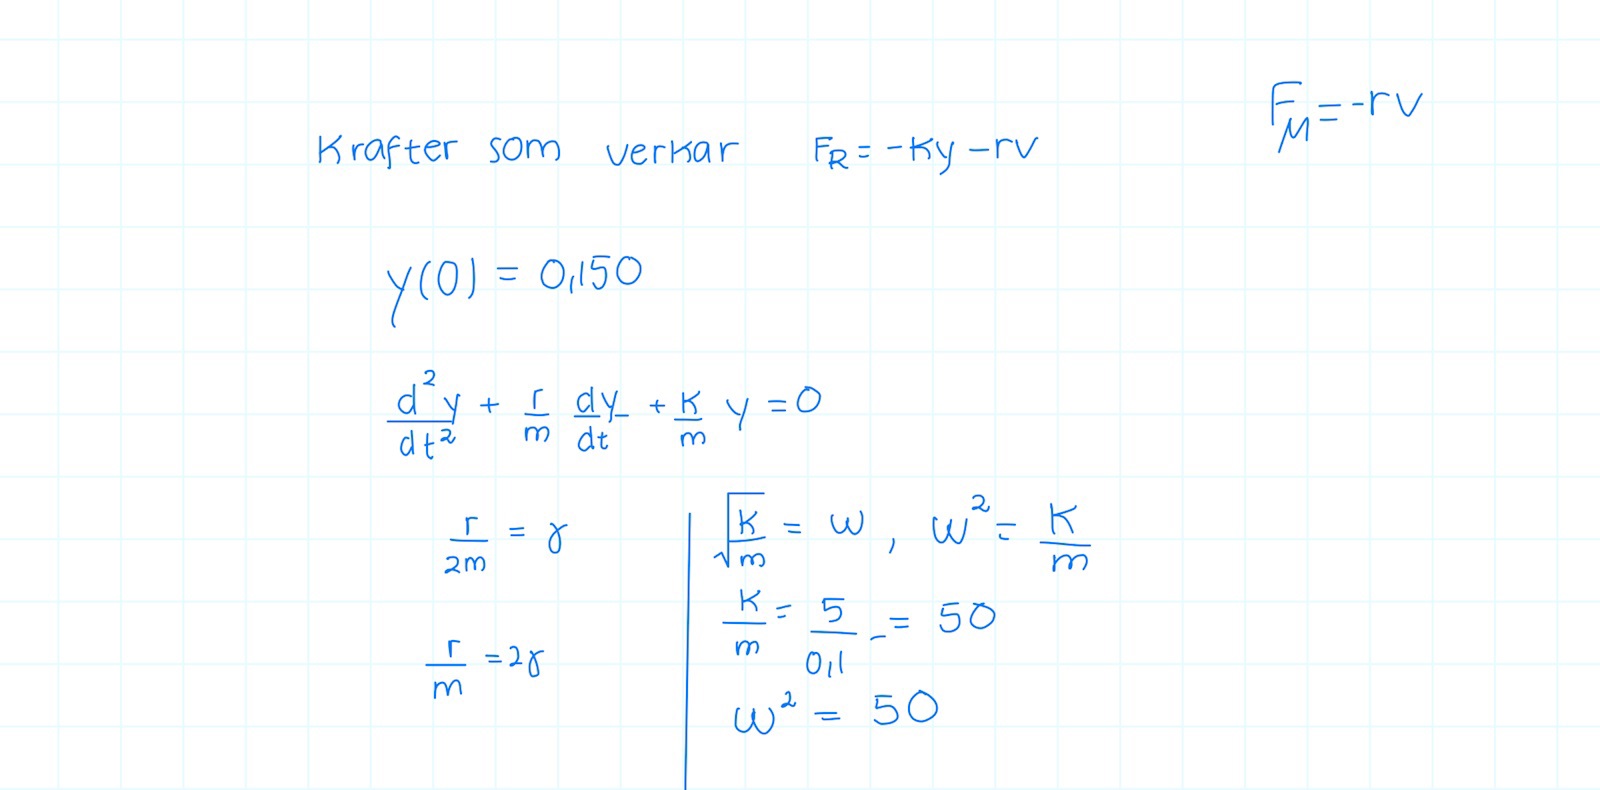 F_M = -rv
Krafter som verkar F_R = -Ky - rv
y(0) = 0,150
d²y/dt² + r/m dy/dt + K/m y = 0
r/2m = γ
r/m = 2γ
√(K/m) = ω, ω² = K/m
K/m = 5/0,1 = 50
ω² = 50